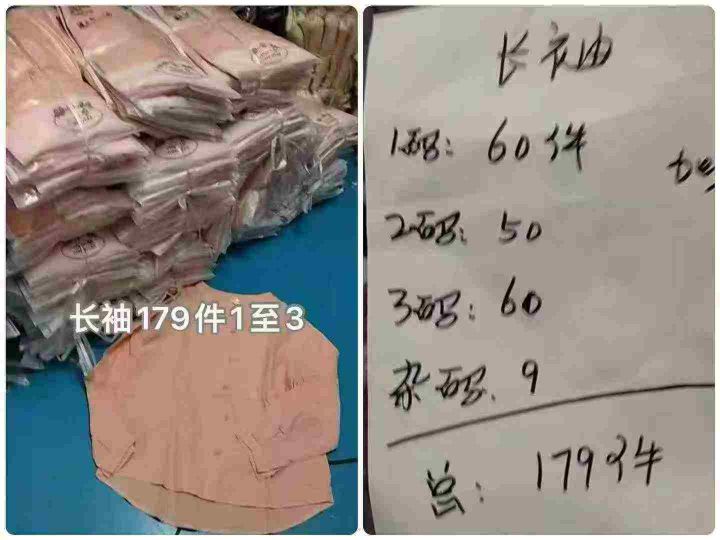 长袖179件1至3
长衣由
1码: 60件
2码: 50
3码: 60
杂码. 9
总: 179件